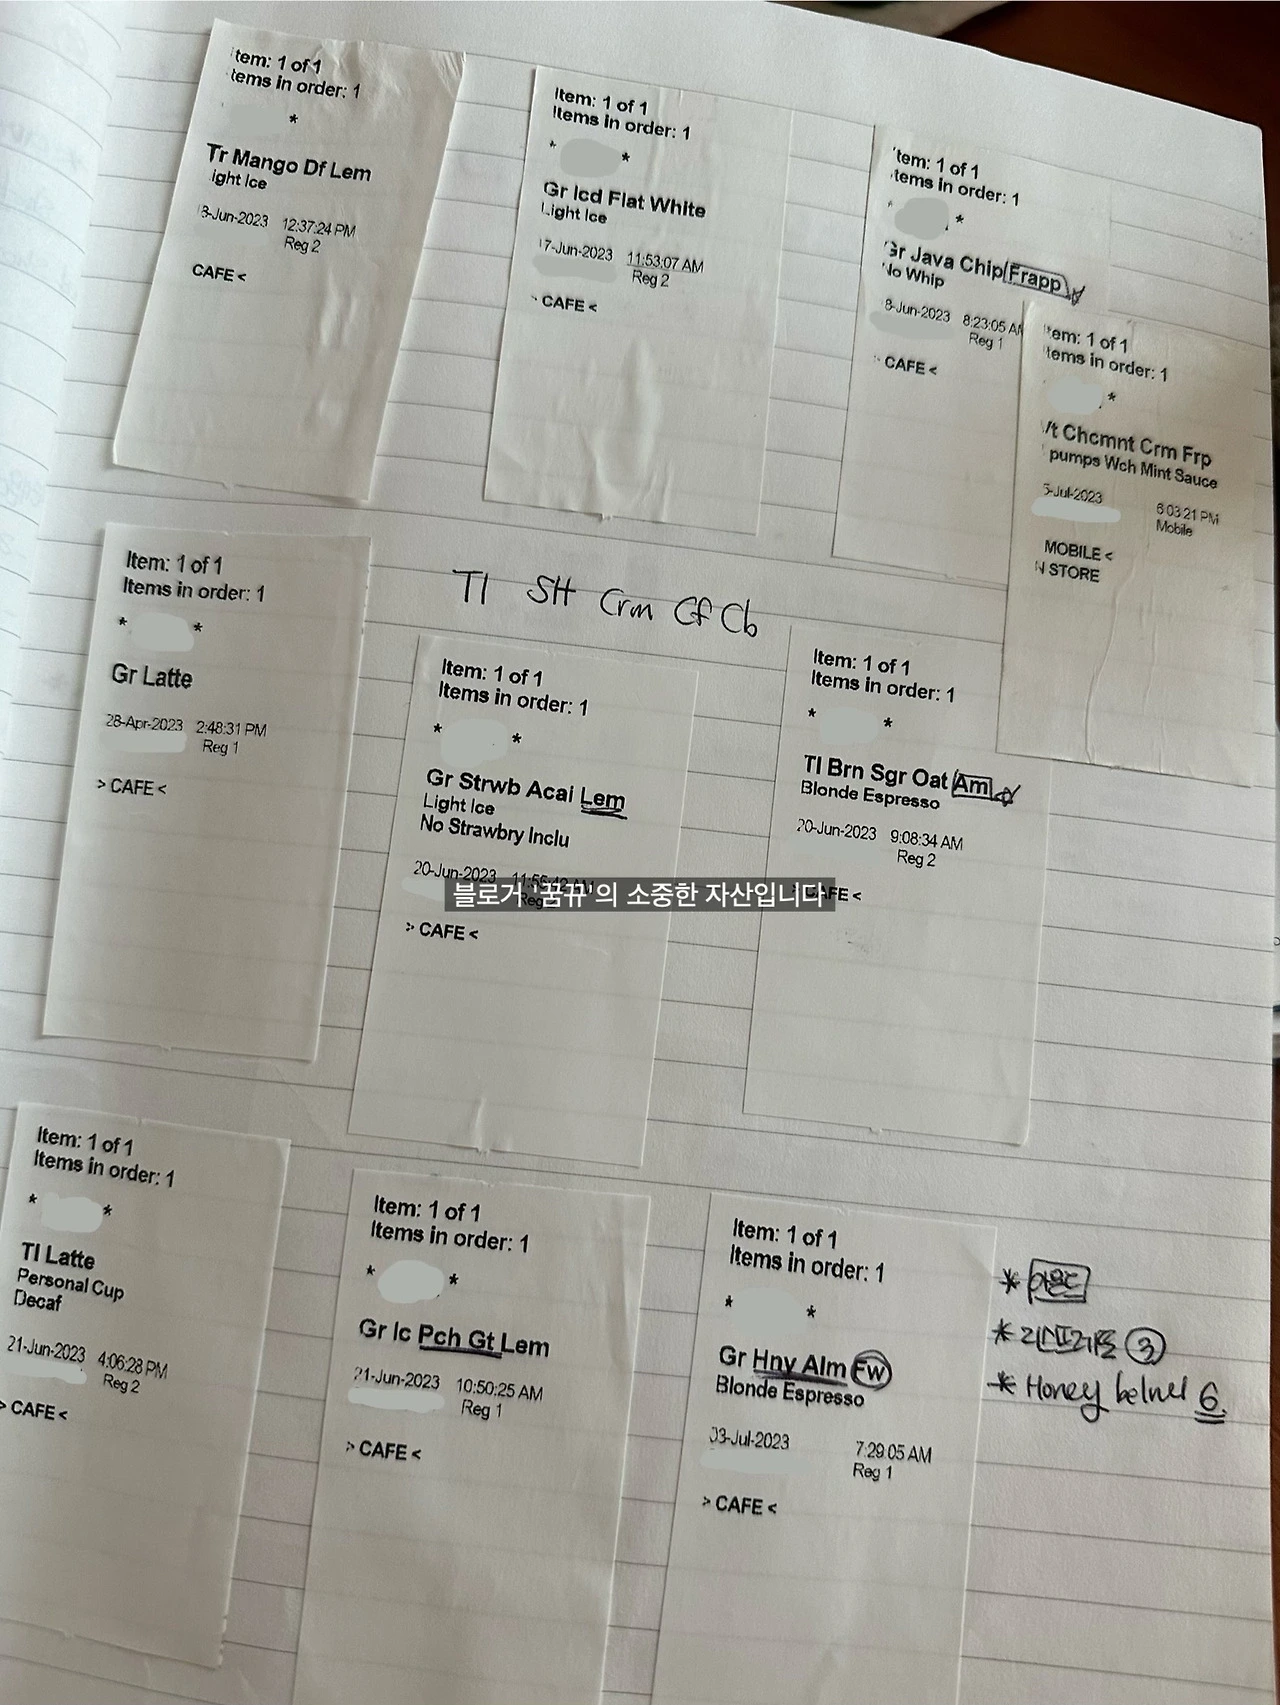 tem: 1 of 1
tems in order: 1
*
Tr Mango Df Lem
ight Ice
8-Jun-2023 12:37:24 PM
Reg 2
CAFE <
Item: 1 of 1
Items in order: 1
* *
Gr Icd Flat White
Light Ice
17-Jun-2023 11:53:07 AM
Reg 2
CAFE <
tem: 1 of 1
tems in order: 1
* *
Gr Java Chip Frapp
No Whip
8-Jun-2023 8:23:05 AM
Reg 1
CAFE <
em: 1 of 1
tems in order: 1
*
Vt Chcmnt Crm Frp
pumps Wch Mint Sauce
5-Jul-2023 6:03:21 PM
Mobile
MOBILE <
N STORE
TI SH Crm Cf Cb
Item: 1 of 1
Items in order: 1
* *
Gr Latte
28-Apr-2023 2:48:31 PM
Reg 1
> CAFE <
Item: 1 of 1
Items in order: 1
* *
Gr Strwb Acai Lem
Light Ice
No Strawbry Inclu
20-Jun-2023
> CAFE <
Item: 1 of 1
Items in order: 1
* *
Tl Brn Sgr Oat Am
Blonde Espresso
20-Jun-2023 9:08:34 AM
Reg 2
CAFE <
블로거 '꿈뀨'의 소중한 자산입니다
Item: 1 of 1
Items in order: 1
* *
Tl Latte
Personal Cup
Decaf
21-Jun-2023 4:06:28 PM
Reg 2
> CAFE <
Item: 1 of 1
Items in order: 1
* *
Gr Ic Pch Gt Lem
21-Jun-2023 10:50:25 AM
Reg 1
> CAFE <
Item: 1 of 1
Items in order: 1
* *
Gr Hny Alm Fw
Blonde Espresso
03-Jul-2023 7:29:05 AM
Reg 1
> CAFE <
*
* 리스프레토 3
* Honey 6